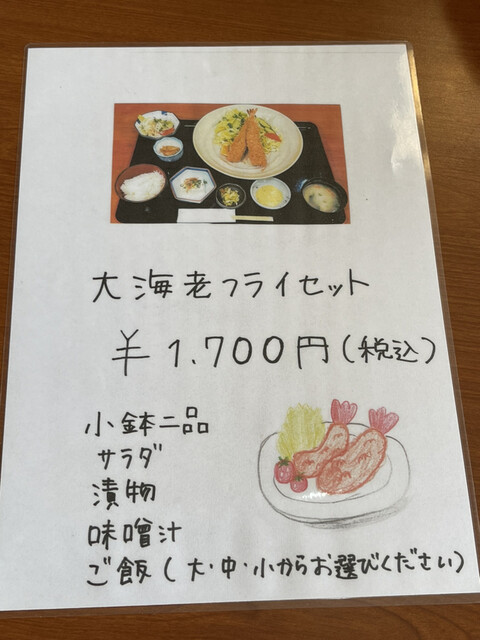 大海老フライセット
¥1,700円(税込)
小鉢二品
サラダ
漬物
味噌汁
ご飯(大・中・小からお選びください)